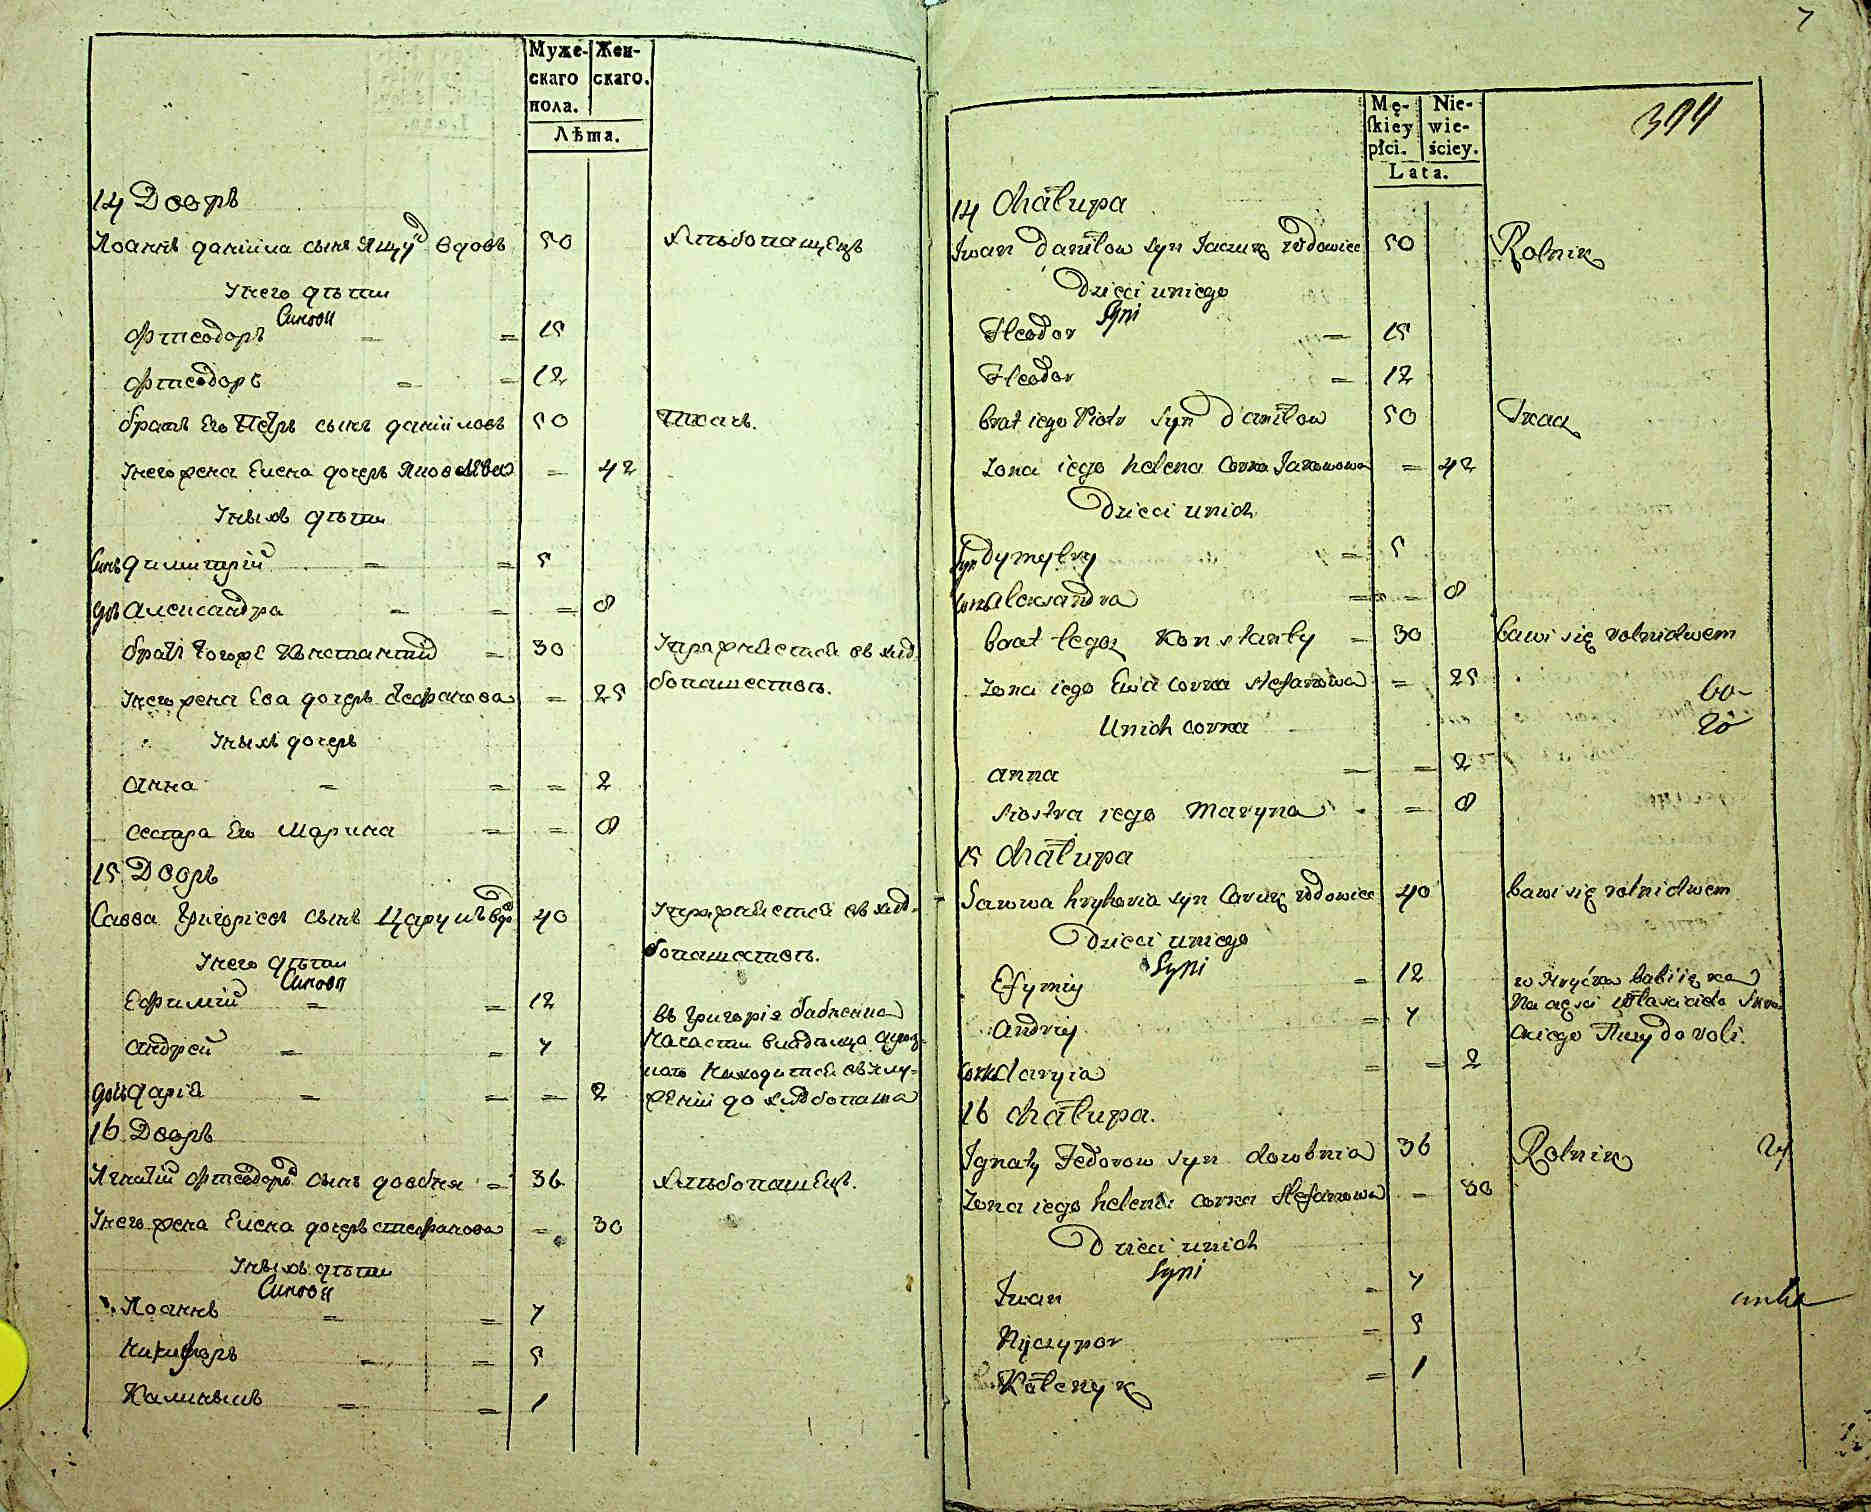 Муже-
скаго
пола.
Жен-
скаго.
Лѣта.
14 Дворъ
Иоаннъ даніила сынъ Яцук вдовъ 50 хлѣбопашецъ
У него дѣти
Синови
Фтеодоръ = = 15
Фтеодоръ = = 12
братъ Его Петръ сынъ даніиловъ 50 Ткачь.
У него жена Елена дочерь Яковлева = 42
У нихъ дѣти
Синъ димитрій = = 5
дочь Александра = = = 8
братъ тогоже Константій = 30 Упражняется въ хлѣ-
бопашествомъ.
У него жена Ева дочерь Стефанова = 25
У нихъ дочерь
Анна = = = 2
сестра Его Марина = = 8
15 Дворъ
Савва Григоріевъ сынъ Царукъ вдо 40 Упражняется въ хлѣ-
бопашествомъ.
У него дѣти
Синови
Ефимій = = 12
въ Григорія бабченка
Андрей = = 7
На части владѣльца
находится въ услу-
дочь дарія = = = 2
женіи до хлѣбопаша
16 Дворъ
Игнатій Фтеодоровъ сынъ довбня = 36 хлѣбопашецъ.
У него жена Елена дочерь стефанова = 30
У нихъ дѣти
Синови
Иоаннъ = = 7
Никифоръ = = 5
Калиникъ = = 1
7
Mę-
skiey
płci.
Nie-
wie-
ściey.
Lata.
394
14 Chałupa
Iwan Daniłow syn Jacuk wdowiec 50 Rolnik
Dzieci uniego
Syni
Fteodor = 15
Fteodor = 12
brat iego Piotr syn Daniłow 50 Tkacz
Zona iego helena Corka Jakowowa = 42
Dzieci unich
Syn dymytry = 5
Corka alexandra = = 8
brat tegoz Konstanty = 30 bawi się rolnictwem
Zona iego Ewa corka stefanowa = 25
60-
20
Unich corka
anna = = 2
siostra iego Maryna = 8
15 chałupa
Sawwa hryhoria syn Caruk wdowiec 40 bawi się rolnictwem
Dzieci uniego
Syni
Efymiy = 12
Andriy = 7
Służy do roli.
Corka daryia = = 2
16 chałupa.
Ignaty Fedorow syn dowbnia 36 Rolnik 27
Zona iego helena corka stefanowa = 30
Dzieci unich
Syni
Iwan = 7
Nyczypor = 5
Kałenyk = 1